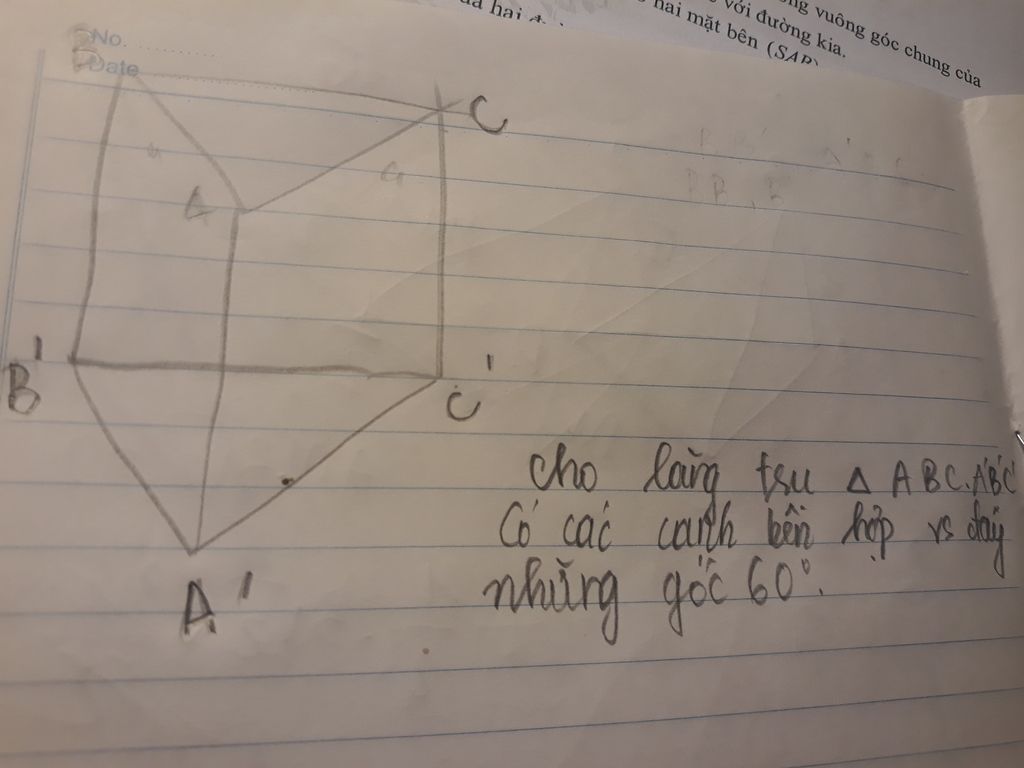 ng vuông góc chung của
với đường kia.
hai mặt bên (SAB)
No.
Date
B
C
A
B'
C'
A'
Cho lăng trụ Δ ABC.A'B'C'
Có các cạnh bên hợp vs đáy
những góc 60°.